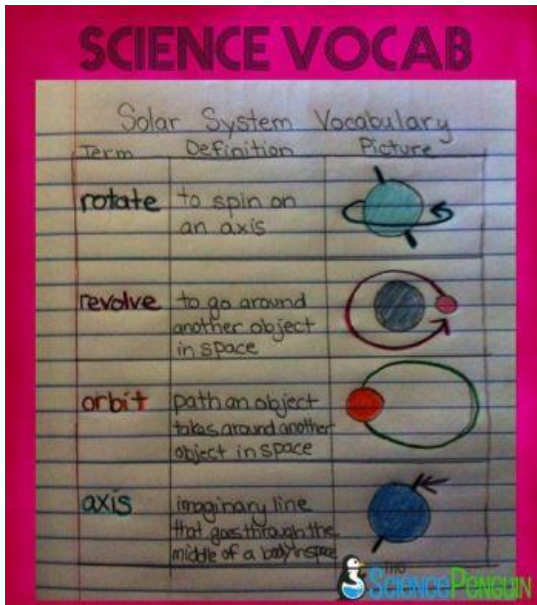 SCIENCE VOCAB
Solar System Vocabulary
Term Definition Picture
rotate to spin on
an axis
revolve to go around
another object
in space
orbit path an object
takes around another
object in space
axis imaginary line
that goes through the
middle of a body in space
the
SCIENCE PENGUIN